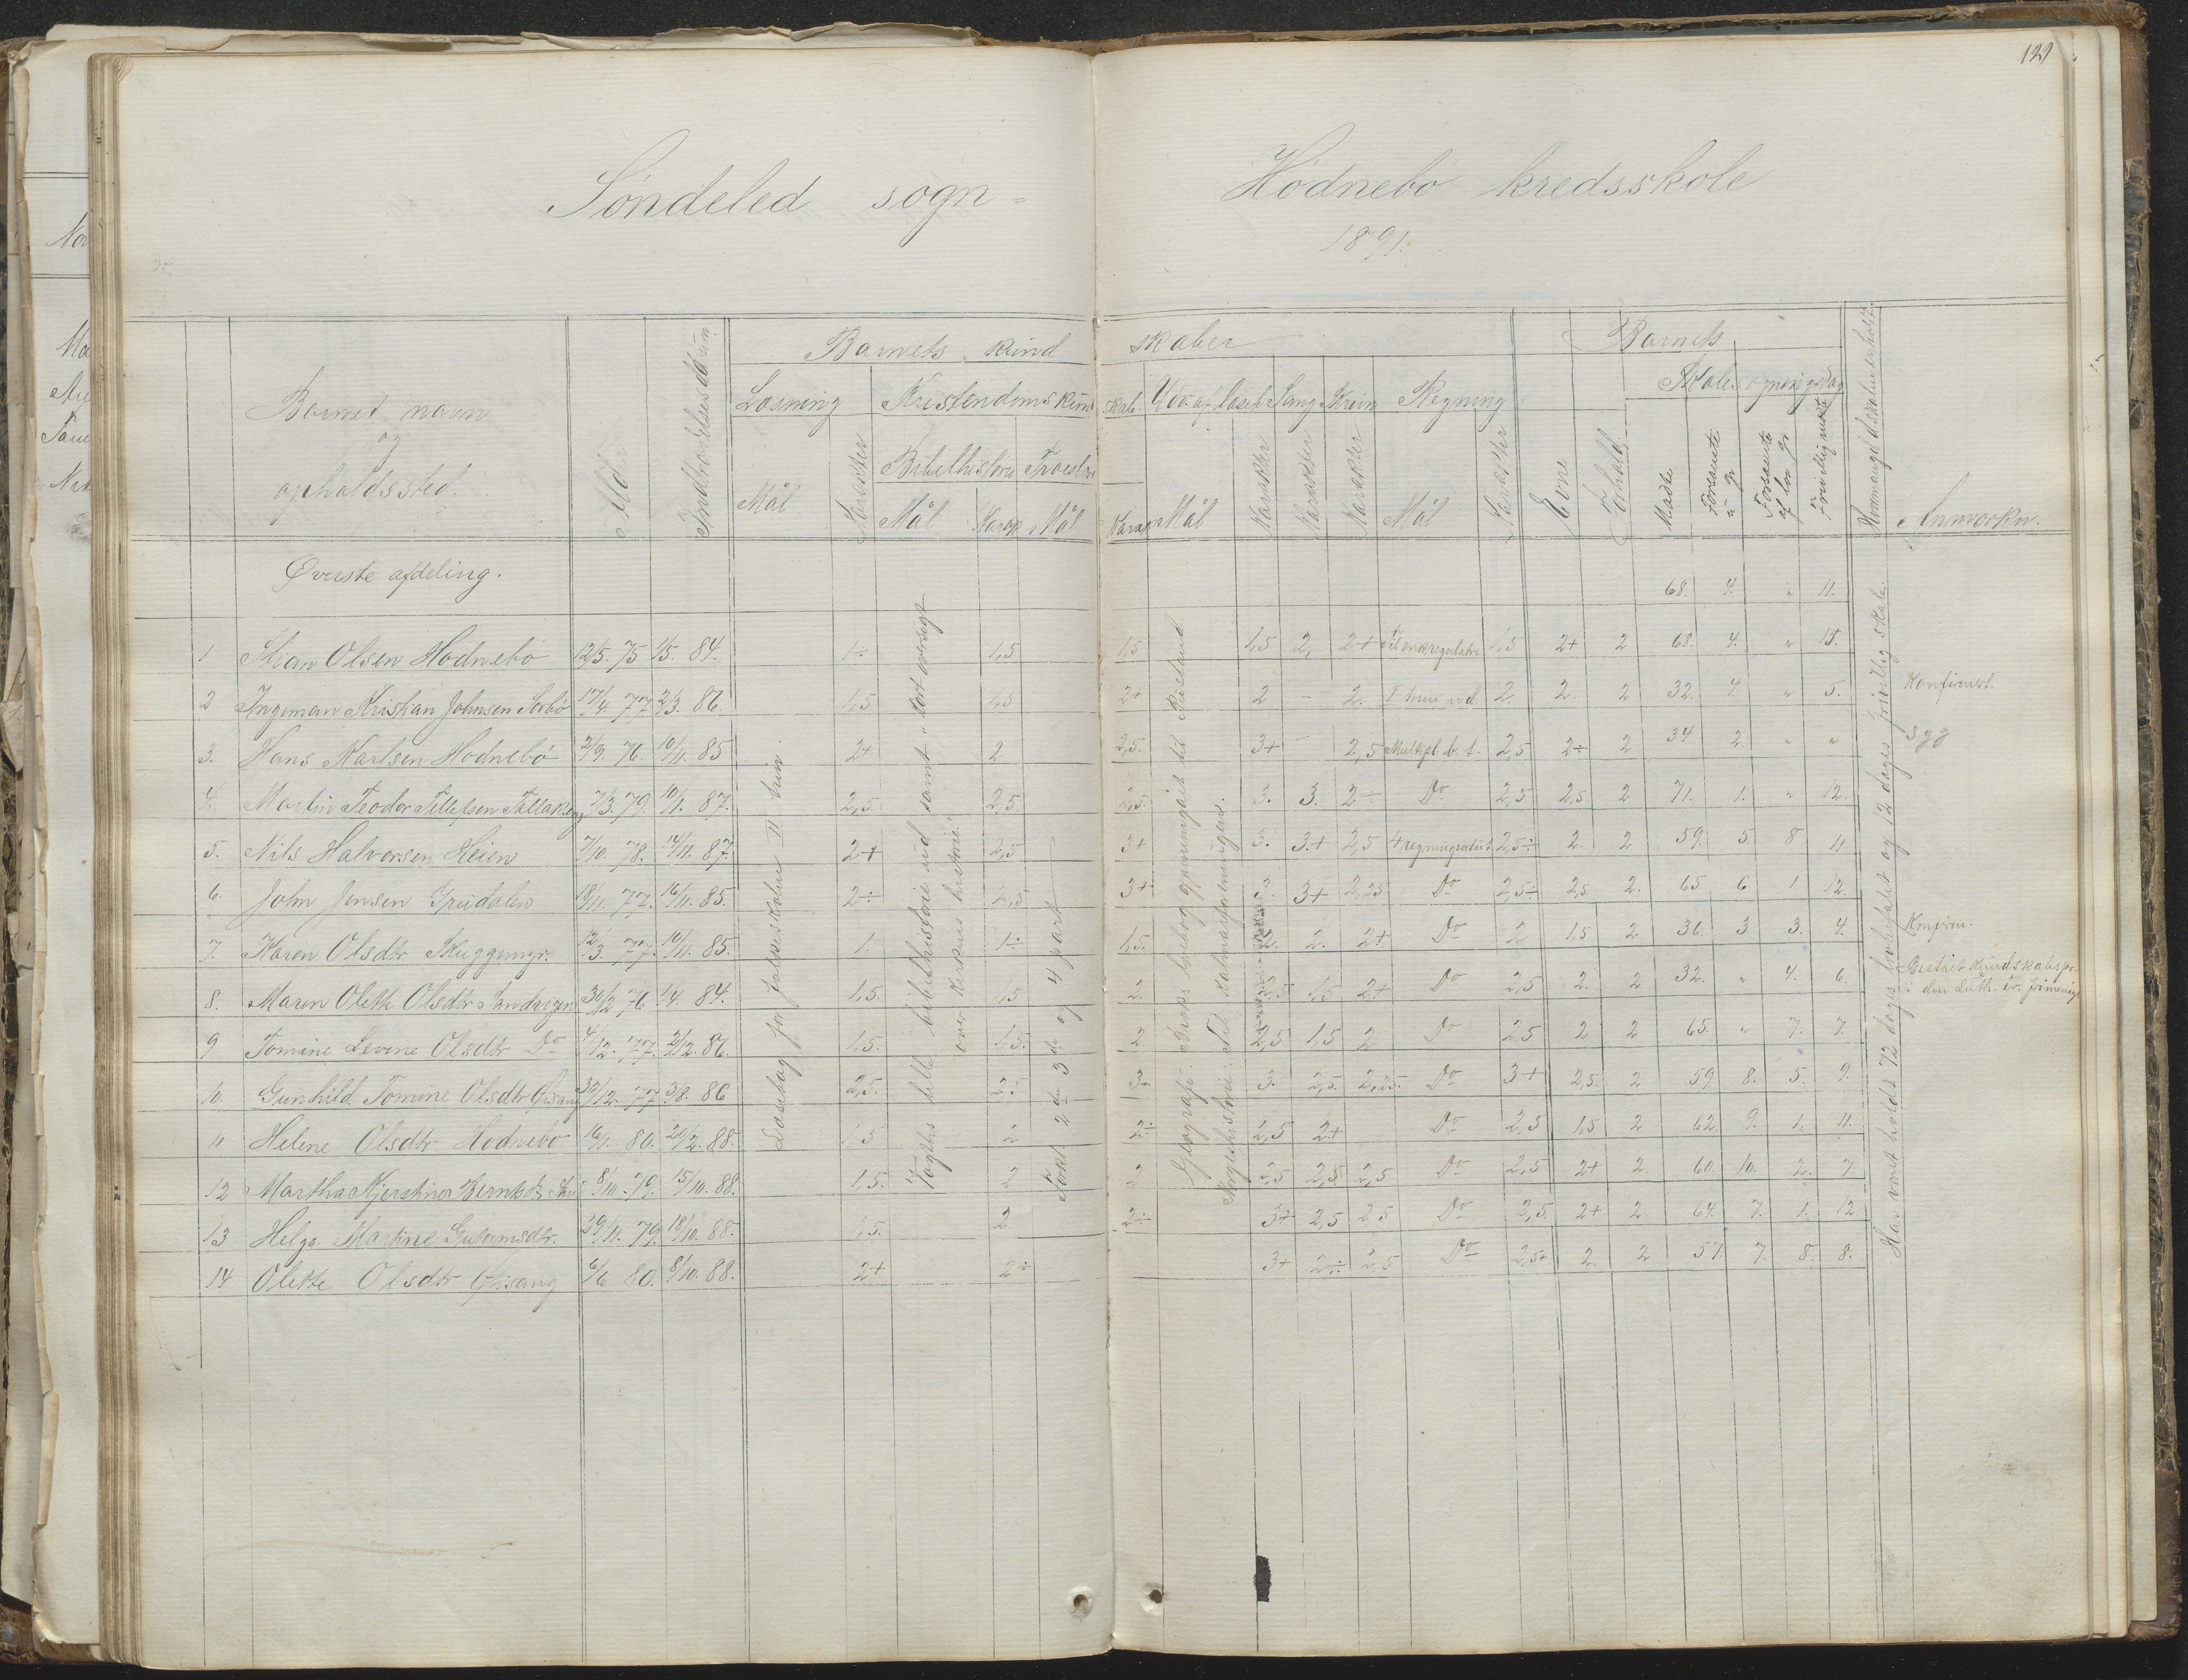 121
Søndeled sogn =
Hødnebø kredsskole
1891.
Barnets kund skaber
Barnets
Læsning Kristendomskund skab. Udv. af læseb. Sang Skriv Regning
Skolesøgningsdag
Barnets navn
og
opholdssted.
Alder
Indtrædelsesdatum.
Bibelhistorie Troeslære
Mål Karakter Mål Karap Mål Karap Mål Karakter Karakter Karakter Mål Karakter Evne Forhold. Mødte Forsømte u. gr. Forsømte af lov. gr. Frivillig mødte Anmærkn.
Øverste afdeling.
68. 4. " 11.
1 Stian Olsen Hødnebø 12/5. 75 1/5. 84. 1÷ 1,5 1,5 1,5 2, 2+ 1,5 2+ 2 68. 4. " 11.
2 Ingeman Kristian Johnsen Sørbø 17/4. 77. 2/3. 86. 1,5 1,5 2+ 2 - 2. 2. 2. 2 32. 4. " 5. Konfirmert.
3. Hans Karlsen Hødnebø 2/9. 76. 10/11. 85 2+ 2 2,5. 3+ - 2,5 Multipl. b. t. 2,5 2÷ 2 34 2 " " Syg
4. Martin Teodor Tellefsen 7/3. 79. 10/1. 87. 2,5. 2,5 2,5. 3. 3. 2÷ Do 2,5 2,5 2 71. 1. " 12.
5. Nils Halvorsen Heien 7/10. 78. 14/11. 87. 2+ 2,5 3+ 3. 3.+ 2,5 4 regningsarter 2,5÷ 2. 2 59. 5. 8 11
6. John Jensen 18/11. 77. 16/11. 85. 2÷ 3+ 3. 3+ 2,25 Do 2,5÷ 2,5. 2. 65. 6 1 12.
7. Karen Olsdtr Skuggemyr. 12/3. 77. 10/11. 85. 1. 1÷ 1,5. 2. 2. 2+ Do 2 1,5 2 36. 3 3. 4. Konfirm.
8. Maren Olette Olsdtr Sandvigen 30/12 76 1/4. 84. 1,5. 1,5 2. 2,5 1,5 2+ Do 2,5 2. 2 32. " 4. 6. i den Luth. ev. frimenig.
9 Tomine Levine Olsdtr Do 4/12. 77. 2/2. 86. 1,5. 1,5. 2 2,5 1,5 2 Do 2,5 2 2 65. " 7. 7.
10. Gunhild Tomine Olsdtr 30/12. 77 3/8. 86 2,5. 2,5 3+ 3. 2,5. 2,25. Do 3+ 2,5. 2 59 8. 5. 9.
11 Helene Olsdtr Hødnebø 16/1. 80. 20/2. 88. 1,5 2 2÷ 2,5 2+ Do 2,5 1,5 2 62. 9. 1. 11.
12 Martha Kjerstine 8/10. 79. 15/10. 88. 1,5. 2 2 2,5 2,5 2,5 Do 2,5 2+ 2. 60. 10. 2. 7.
13 Helga Martine Gutormsdtr. 29/11. 79. 18/10. 88. 1,5. 2 2÷ 3+ 2,5 2,5 Do 2,5. 2+ 2. 64. 7. 1. 12
14 Olette Olsdtr 6/6 80. 8/10. 88. 2+ 2÷ 3+ 2÷ 2,5 Do 2,5+ 2. 2 57. 7. 8. 8.
Læsebog for folkeskolen II trin.
Vogts lille bibelhistorie ud samt "kort oversigt
over kirkens historie."
2den 3die og 4 part
Geografi:
Til Kalmarforeningen.
Har været holdt 72 dages frivillig skole.